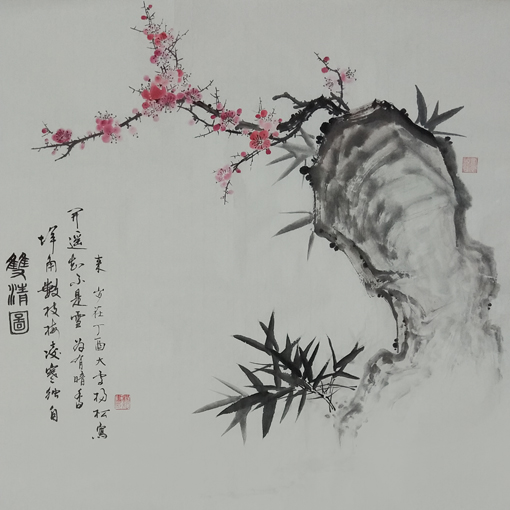 雙清圖
墙角數枝梅凌寒独自
开遥知不是雪為有暗香
来 岁在丁酉大雪杨松寫